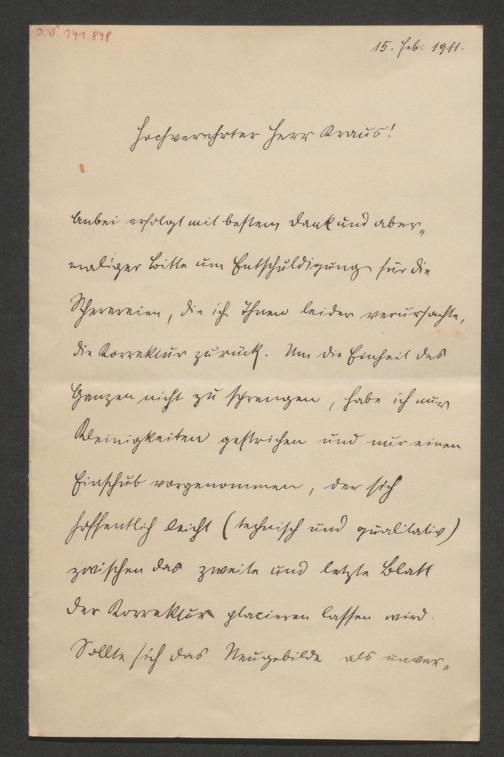 J.N. 141.898
15. Feb. 1911.
Hochverehrter Herr Kraus!
Anbei erfolgt mit bestem Dank und aber„
maliger Bitte um Entschuldigung für die
Scherereien, die ich Ihnen leider verursachte,
die Korrektur zurück. Um die Einheit des
Ganzen nicht zu sprengen, habe ich nur
Kleinigkeiten gestrichen und nur einen
Einschub vorgenommen, der sich
hoffentlich leicht (technisch und qualitativ)
zwischen das zweite und letzte Blatt
der Korrektur placieren lassen wird.
Sollte sich das Neugebilde als unver„